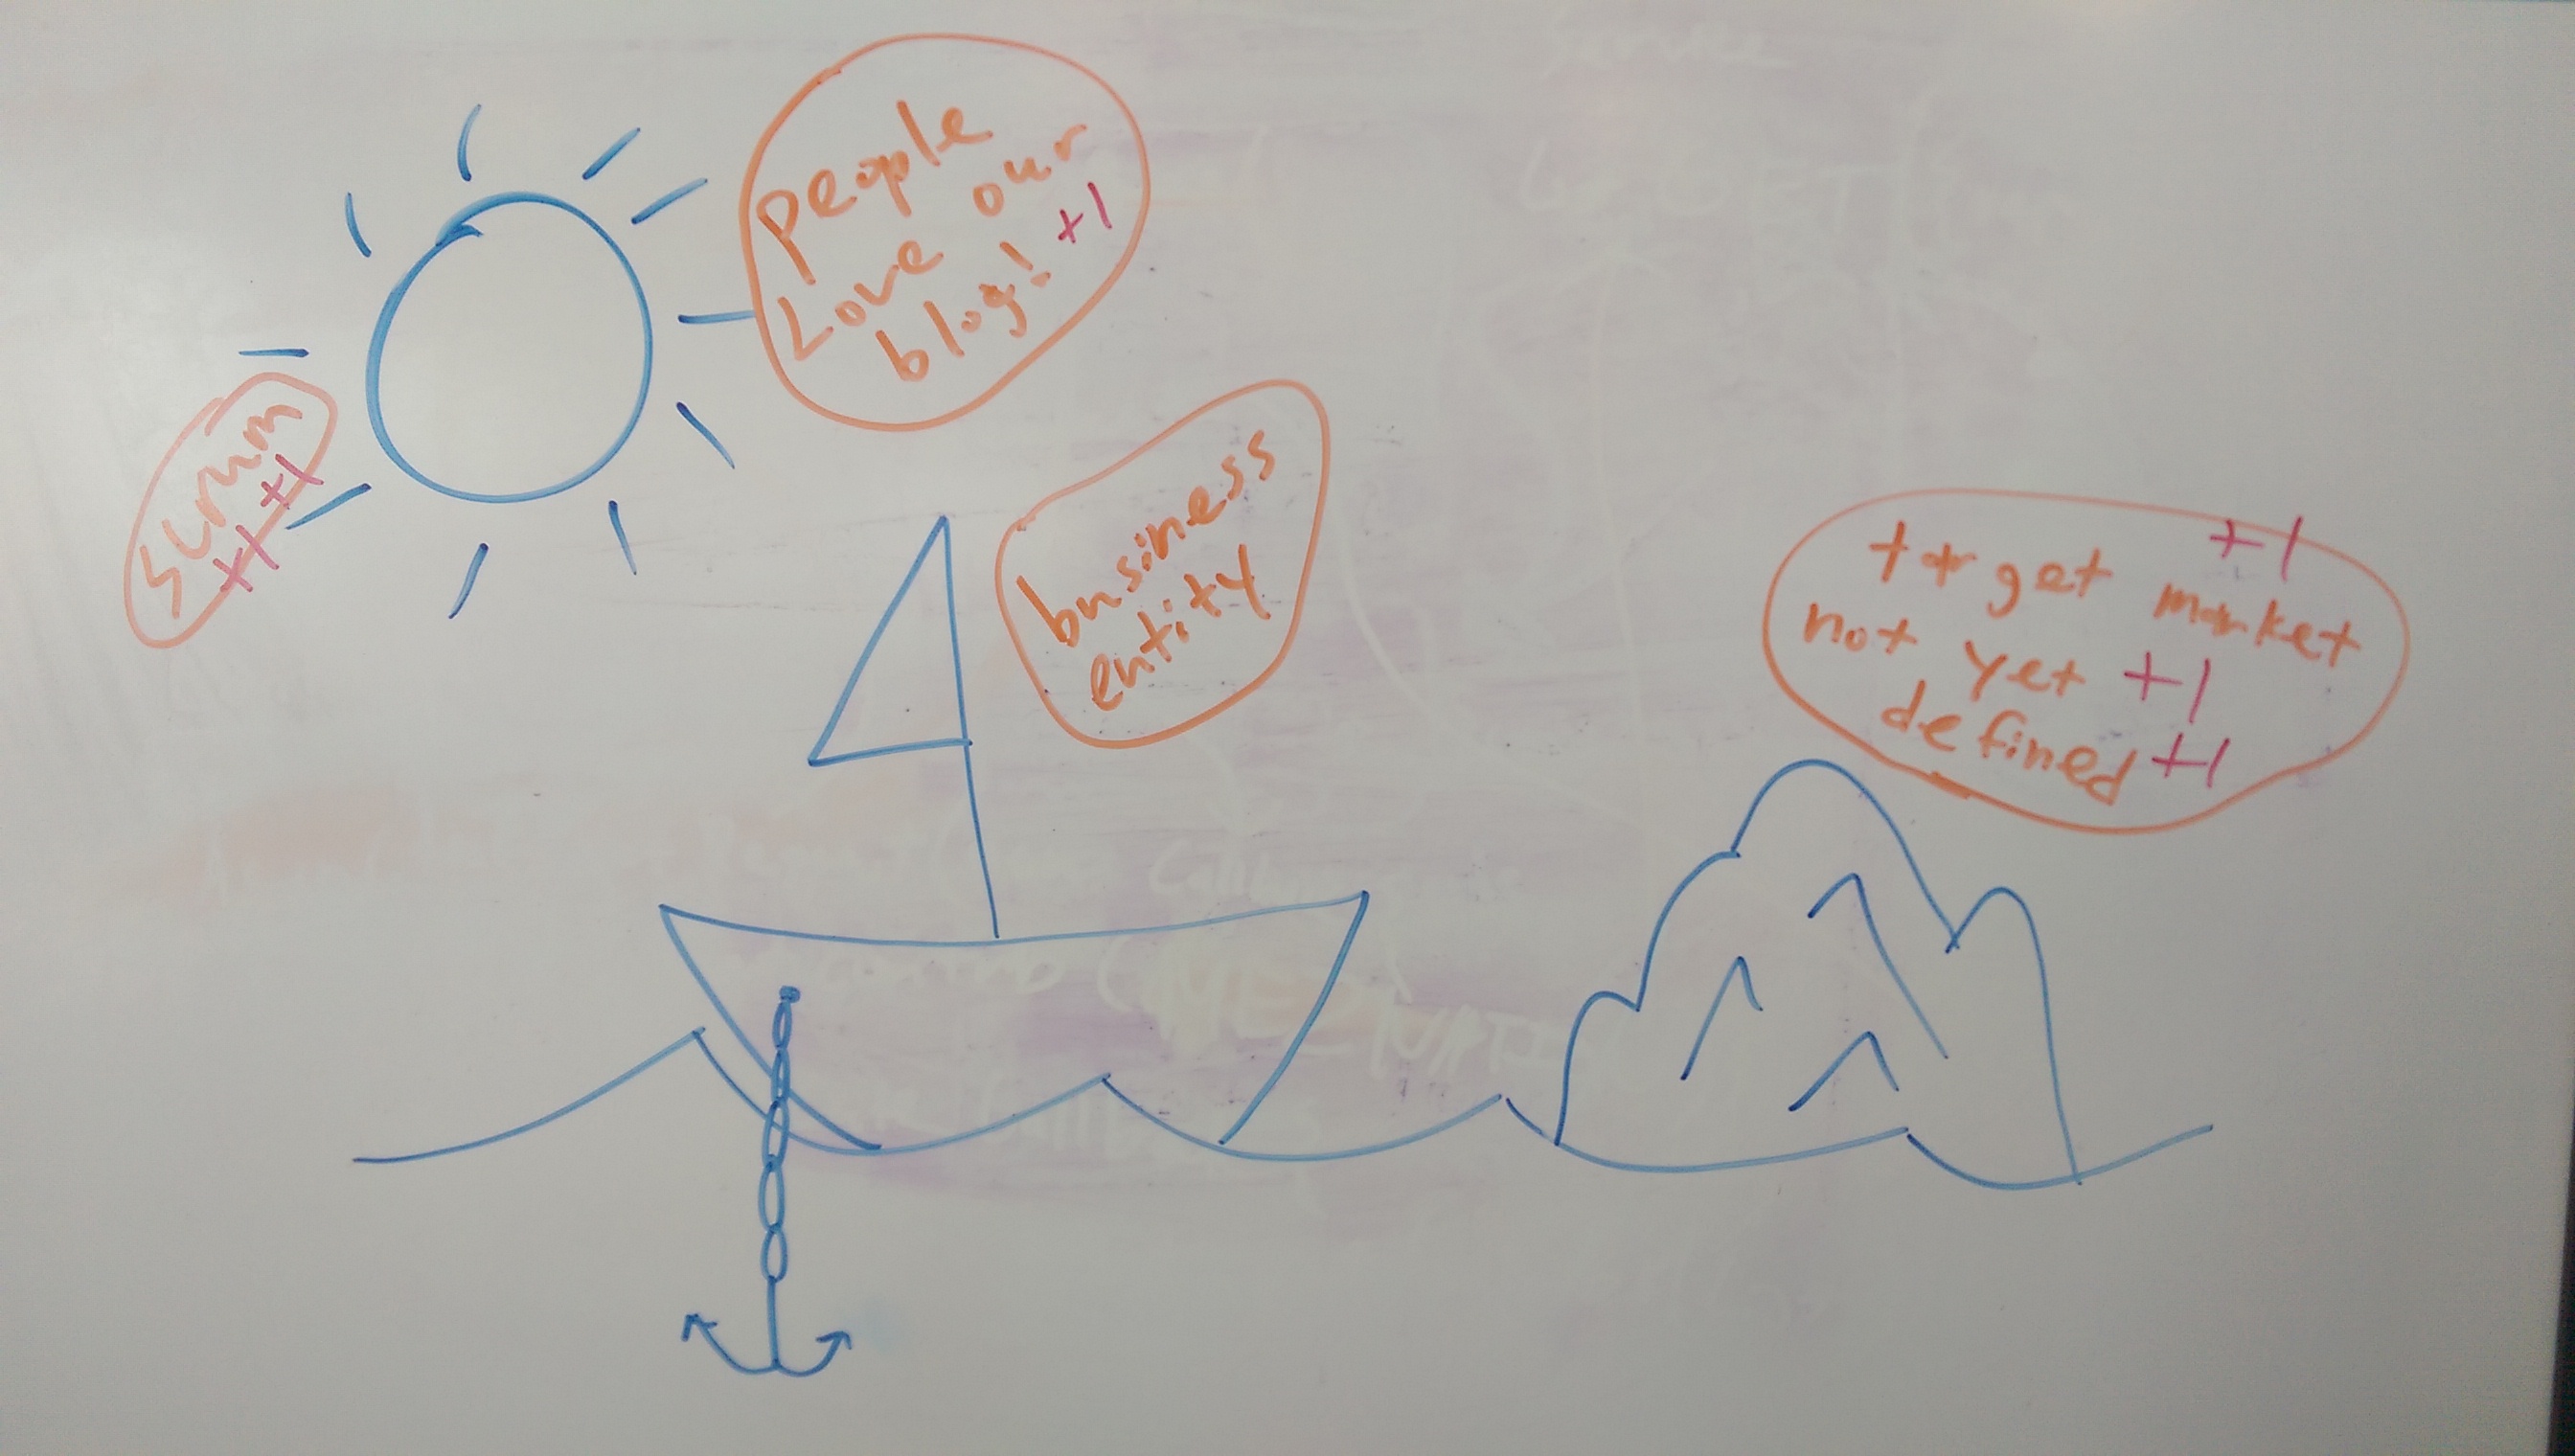 people
Love our
blog! +1
scrum
+1 +1
business
entity
+1
target market
not yet +1
defined +1